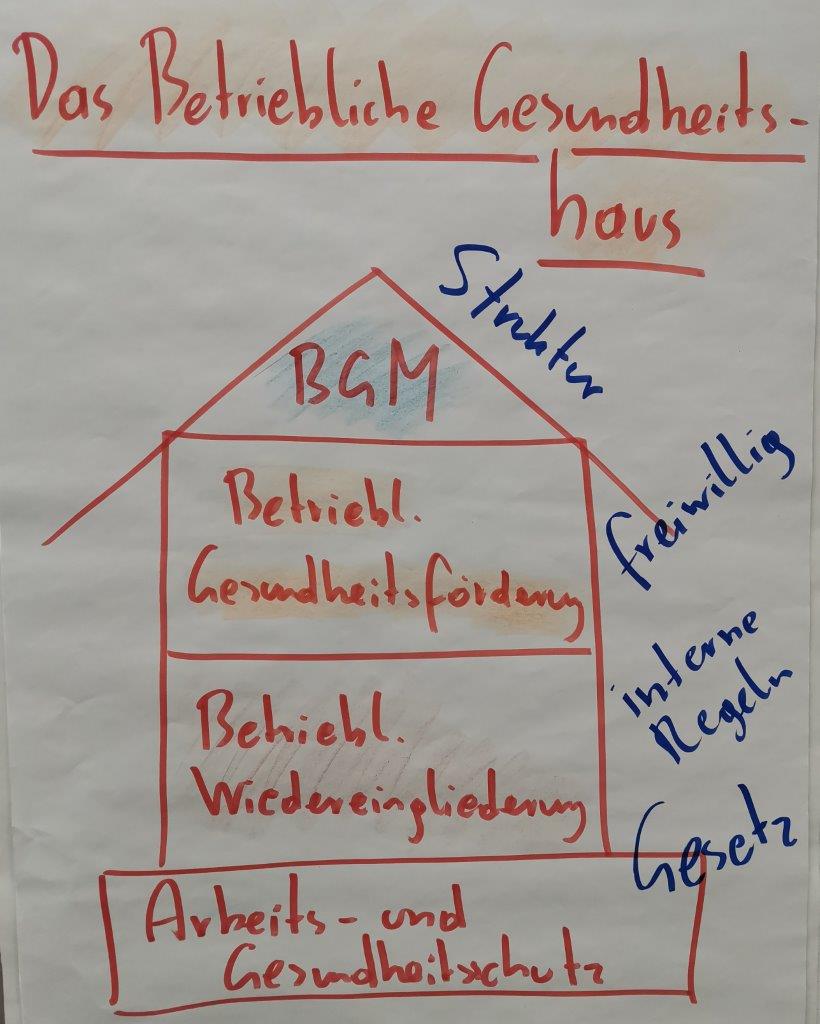 Das Betriebliche Gesundheits-
haus
Struktur
BGM
freiwillig
Betriebl.
Gesundheitsförderung
interne
Regeln
Betriebl.
Wiedereingliederung
Gesetz
Arbeits- und
Gesundheitsschutz